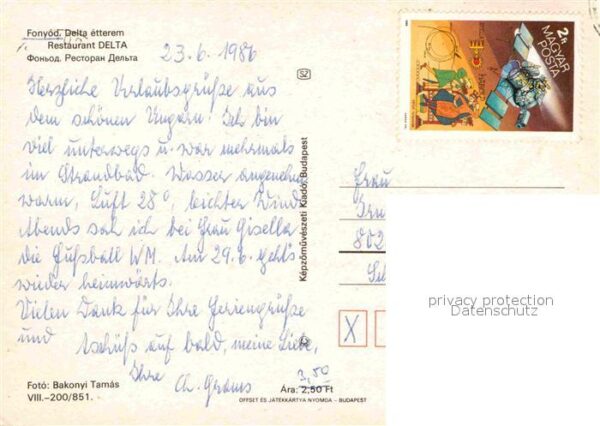 Fonyód. Delta étterem
Restaurant DELTA
Фоньод. Ресторан Дельта
23.6.1986
Herzliche Urlaubsgrüße aus
dem schönen Ungarn. Ich bin
viel unterwegs u. war mehrmals
im Strandbad. Wasser angenehm
warm, Luft 28°, leichter Wind.
Abends sah ich bei Frau Gisella
die Fußball WM. Am 29.6. geht's
wieder heimwärts.
Vielen Dank für Ihre Feriengrüße
und tschüß auf bald, meine Liebe,
Ihre
Ch. Grams
Fotó: Bakonyi Tamás
VIII.–200/851.
3,50
Ára: 2,50 Ft
OFFSET ÉS JÁTÉKKÁRTYA NYOMDA – BUDAPEST
SZ
Képzőművészeti Kiadó, Budapest
2 Ft
MAGYAR
POSTA
Frau
802
X
privacy protection
Datenschutz